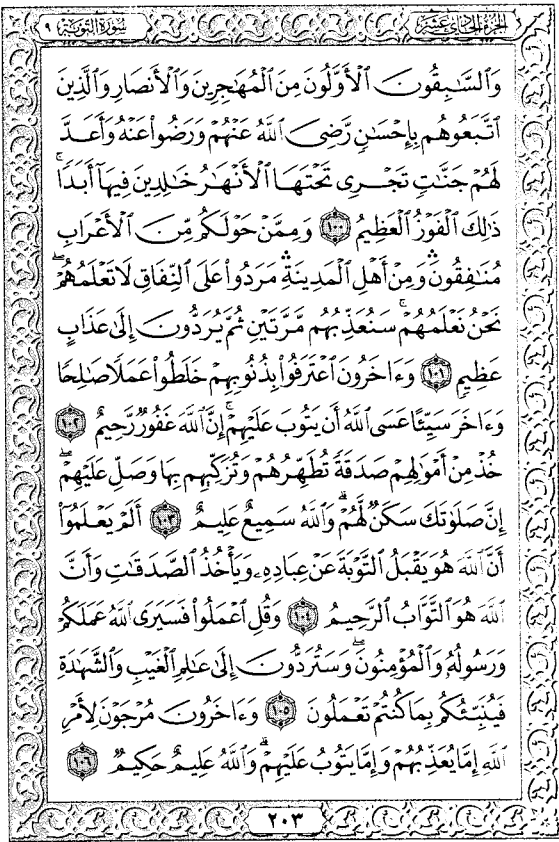 الجزء الحادي عشر
سورة التوبة ٩
وَٱلسَّٰبِقُونَ ٱلْأَوَّلُونَ مِنَ ٱلْمُهَٰجِرِينَ وَٱلْأَنصَارِ وَٱلَّذِينَ
ٱتَّبَعُوهُم بِإِحْسَٰنٍ رَّضِيَ ٱللَّهُ عَنْهُمْ وَرَضُوا۟ عَنْهُ وَأَعَدَّ
لَهُمْ جَنَّٰتٍ تَجْرِى تَحْتَهَا ٱلْأَنْهَٰرُ خَٰلِدِينَ فِيهَآ أَبَدًا ۚ
ذَٰلِكَ ٱلْفَوْزُ ٱلْعَظِيمُ ١٠٠ وَمِمَّنْ حَوْلَكُم مِّنَ ٱلْأَعْرَابِ
مُنَٰفِقُونَ ۖ وَمِنْ أَهْلِ ٱلْمَدِينَةِ ۛ مَرَدُوا۟ عَلَى ٱلنِّفَاقِ لَا تَعْلَمُهُمْ ۖ
نَحْنُ نَعْلَمُهُمْ ۚ سَنُعَذِّبُهُم مَّرَّتَيْنِ ثُمَّ يُرَدُّونَ إِلَىٰ عَذَابٍ
عَظِيمٍ ١٠١ وَءَاخَرُونَ ٱعْتَرَفُوا۟ بِذُنُوبِهِمْ خَلَطُوا۟ عَمَلًا صَٰلِحًا
وَءَاخَرَ سَيِّئًا عَسَى ٱللَّهُ أَن يَتُوبَ عَلَيْهِمْ ۚ إِنَّ ٱللَّهَ غَفُورٌ رَّحِيمٌ ١٠٢
خُذْ مِنْ أَمْوَٰلِهِمْ صَدَقَةً تُطَهِّرُهُمْ وَتُزَكِّيهِم بِهَا وَصَلِّ عَلَيْهِمْ ۖ
إِنَّ صَلَوٰتَكَ سَكَنٌ لَّهُمْ ۗ وَٱللَّهُ سَمِيعٌ عَلِيمٌ ١٠٣ أَلَمْ يَعْلَمُوٓا۟
أَنَّ ٱللَّهَ هُوَ يَقْبَلُ ٱلتَّوْبَةَ عَنْ عِبَادِهِۦ وَيَأْخُذُ ٱلصَّدَقَٰتِ وَأَنَّ
ٱللَّهَ هُوَ ٱلتَّوَّابُ ٱلرَّحِيمُ ١٠٤ وَقُلِ ٱعْمَلُوا۟ فَسَيَرَى ٱللَّهُ عَمَلَكُمْ
وَرَسُولُهُۥ وَٱلْمُؤْمِنُونَ ۖ وَسَتُرَدُّونَ إِلَىٰ عَٰلِمِ ٱلْغَيْبِ وَٱلشَّهَٰدَةِ
فَيُنَبِّئُكُم بِمَا كُنتُمْ تَعْمَلُونَ ١٠٥ وَءَاخَرُونَ مُرْجَوْنَ لِأَمْرِ
ٱللَّهِ إِمَّا يُعَذِّبُهُمْ وَإِمَّا يَتُوبُ عَلَيْهِمْ ۗ وَٱللَّهُ عَلِيمٌ حَكِيمٌ ١٠٦
٢٠٣